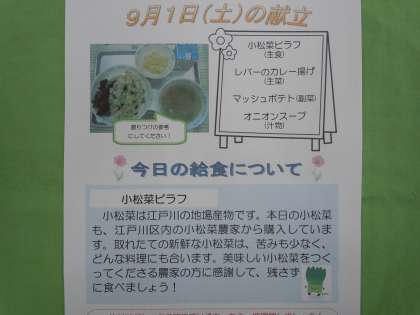 9月1日(土)の献立
小松菜ピラフ
(生食)
レバーのカレー揚げ
(主菜)
マッシュポテト(副菜)
オニオンスープ
(汁物)
盛りつけの参考
にしてください!
今日の給食について
小松菜ピラフ
小松菜は江戸川の地場産物です。本日の小松菜
も、江戸川区内の小松菜農家から購入していま
す。取れたての新鮮な小松菜は、苦みも少なく、
どんな料理にも合います。美味しい小松菜をつく
ってくださる農家の方に感謝して、残さず
に食べましょう!